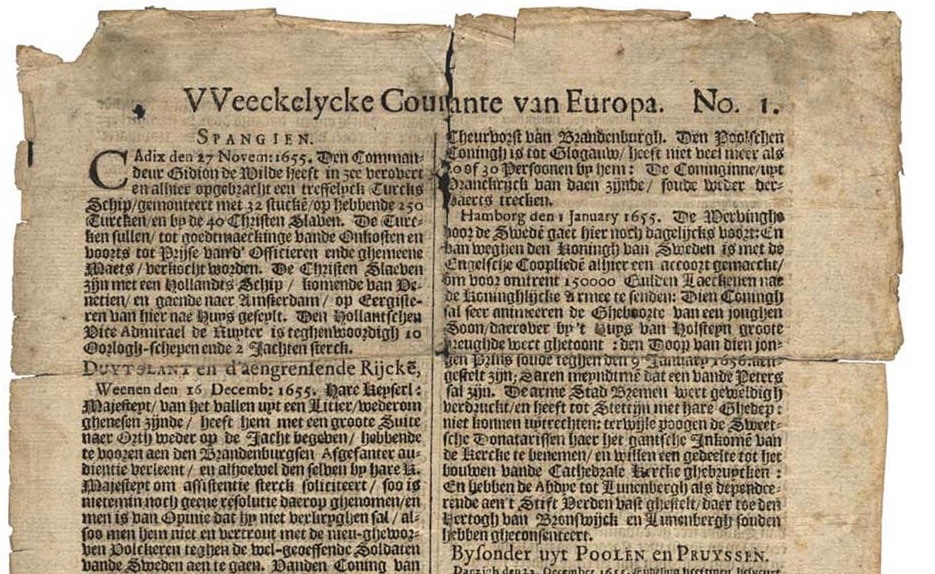 VVeeckelycke Courante van Europa. No. 1.
SPANGIEN.
CAdix den 27 Novem: 1655. Den Comman-
deur Gidion de Wilde heeft in zee verovert
en alhier opgebracht een treffelyck Turcks
Schip/gemonteert met 32 stuckē/op hebbende 250
Turcken/en by de 40 Christen Slaven. De Turc-
ken sullen/ tot goedtmaeckinge vande Onkosten en
voorts tot Prijse vand' Officieren ende ghemeene
Maets/ verkocht worden. De Christen Slaeven
zijn met een Hollandts Schip/ komende van Ve-
netien/ en gaende naer Amsterdam/ op Eergiste-
ren van hier nae Huys geseylt. Den Hollantschen
Vice Admirael de Ruyter is teghenwoordigh 10
Oorlogh-schepen ende 2 Jachten sterck.
DUYTSLANT en d'aengrensende Rijckē,
Weenen den 16 Decemb: 1655. Hare Keyserl:
Majesteyt/ van het vallen uyt een Litier/wederom
ghenesen zijnde/ heeft hem met een groote Suite
naer Orth weder op de Jacht begeven/ hebbende
te vooren aen den Brandenburgsen Afgesanter au-
dientie verleent/ en alhoewel den selven by hare K.
Majesteyt om assistentie sterck soliciteert/ soo is
nietemin noch geene resolutie daerop ghenomen/en
men is van Opinie dat hy niet verkryghen sal/ al-
soo men hem niet en vertrout met de nieu-ghewor-
ven Polckeren teghen de wel-geoeffende Soldaten
vande Sweden aen te gaen. Vanden Coning van
Cheurvorst van Brandenburgh. Den Poolschen
Coningh is tot Glogauw/ heeft niet veel meer als
20 of 30 Persoonen by hem: De Coninginne/uyt
Vranckryck van daen zijnde/ soude weder der-
waerts trecken.
Hamborg den 1 January 1655. De Wervinghe
voor de Swedē gaet hier noch dagelijcks voort: En
van weghen den Koningh van Sweden is met de
Engelsche Cooplieden alhier een accoort gemaeckt/
om voor omtrent 150000 Gulden Laeckenen nae
de Koninghlijcke Armee te senden: Dien Coningh
sal seer animeeren de Gheboorte van een jonghen
Soon/daerover by't Huys van Holsteyn groote
vreughde wert ghetoont: den Doop van dien jon-
gen Prins soude teghen den 9 January 1656. aen-
gestelt zijn; Daren meyndtmē dat een vande Peters
sal zijn. De arme Stad Bremen wert geweldigh
verdruckt/en heeft tot Stettijn met hare Ghedep:
niet konnen uytrechten: terwijle poogen de Sweet-
sche Donatarissen haer het gantsche Inkomē van
de Kercke te benemen/ en willen een gedeelte tot het
bouwen vande Cathedrale Kercke ghebruycken:
En hebben de Abdye tot Lunenbergh als dependee-
rende aen't Stift Verden vast ghestelt/daer toe den
Hertogh van Bronswijck en Lunenbergh souden
hebben gheconsenteert.
Bysonder uyt POOLEN en PRUYSSEN.
Danzich den 22 December 1655.